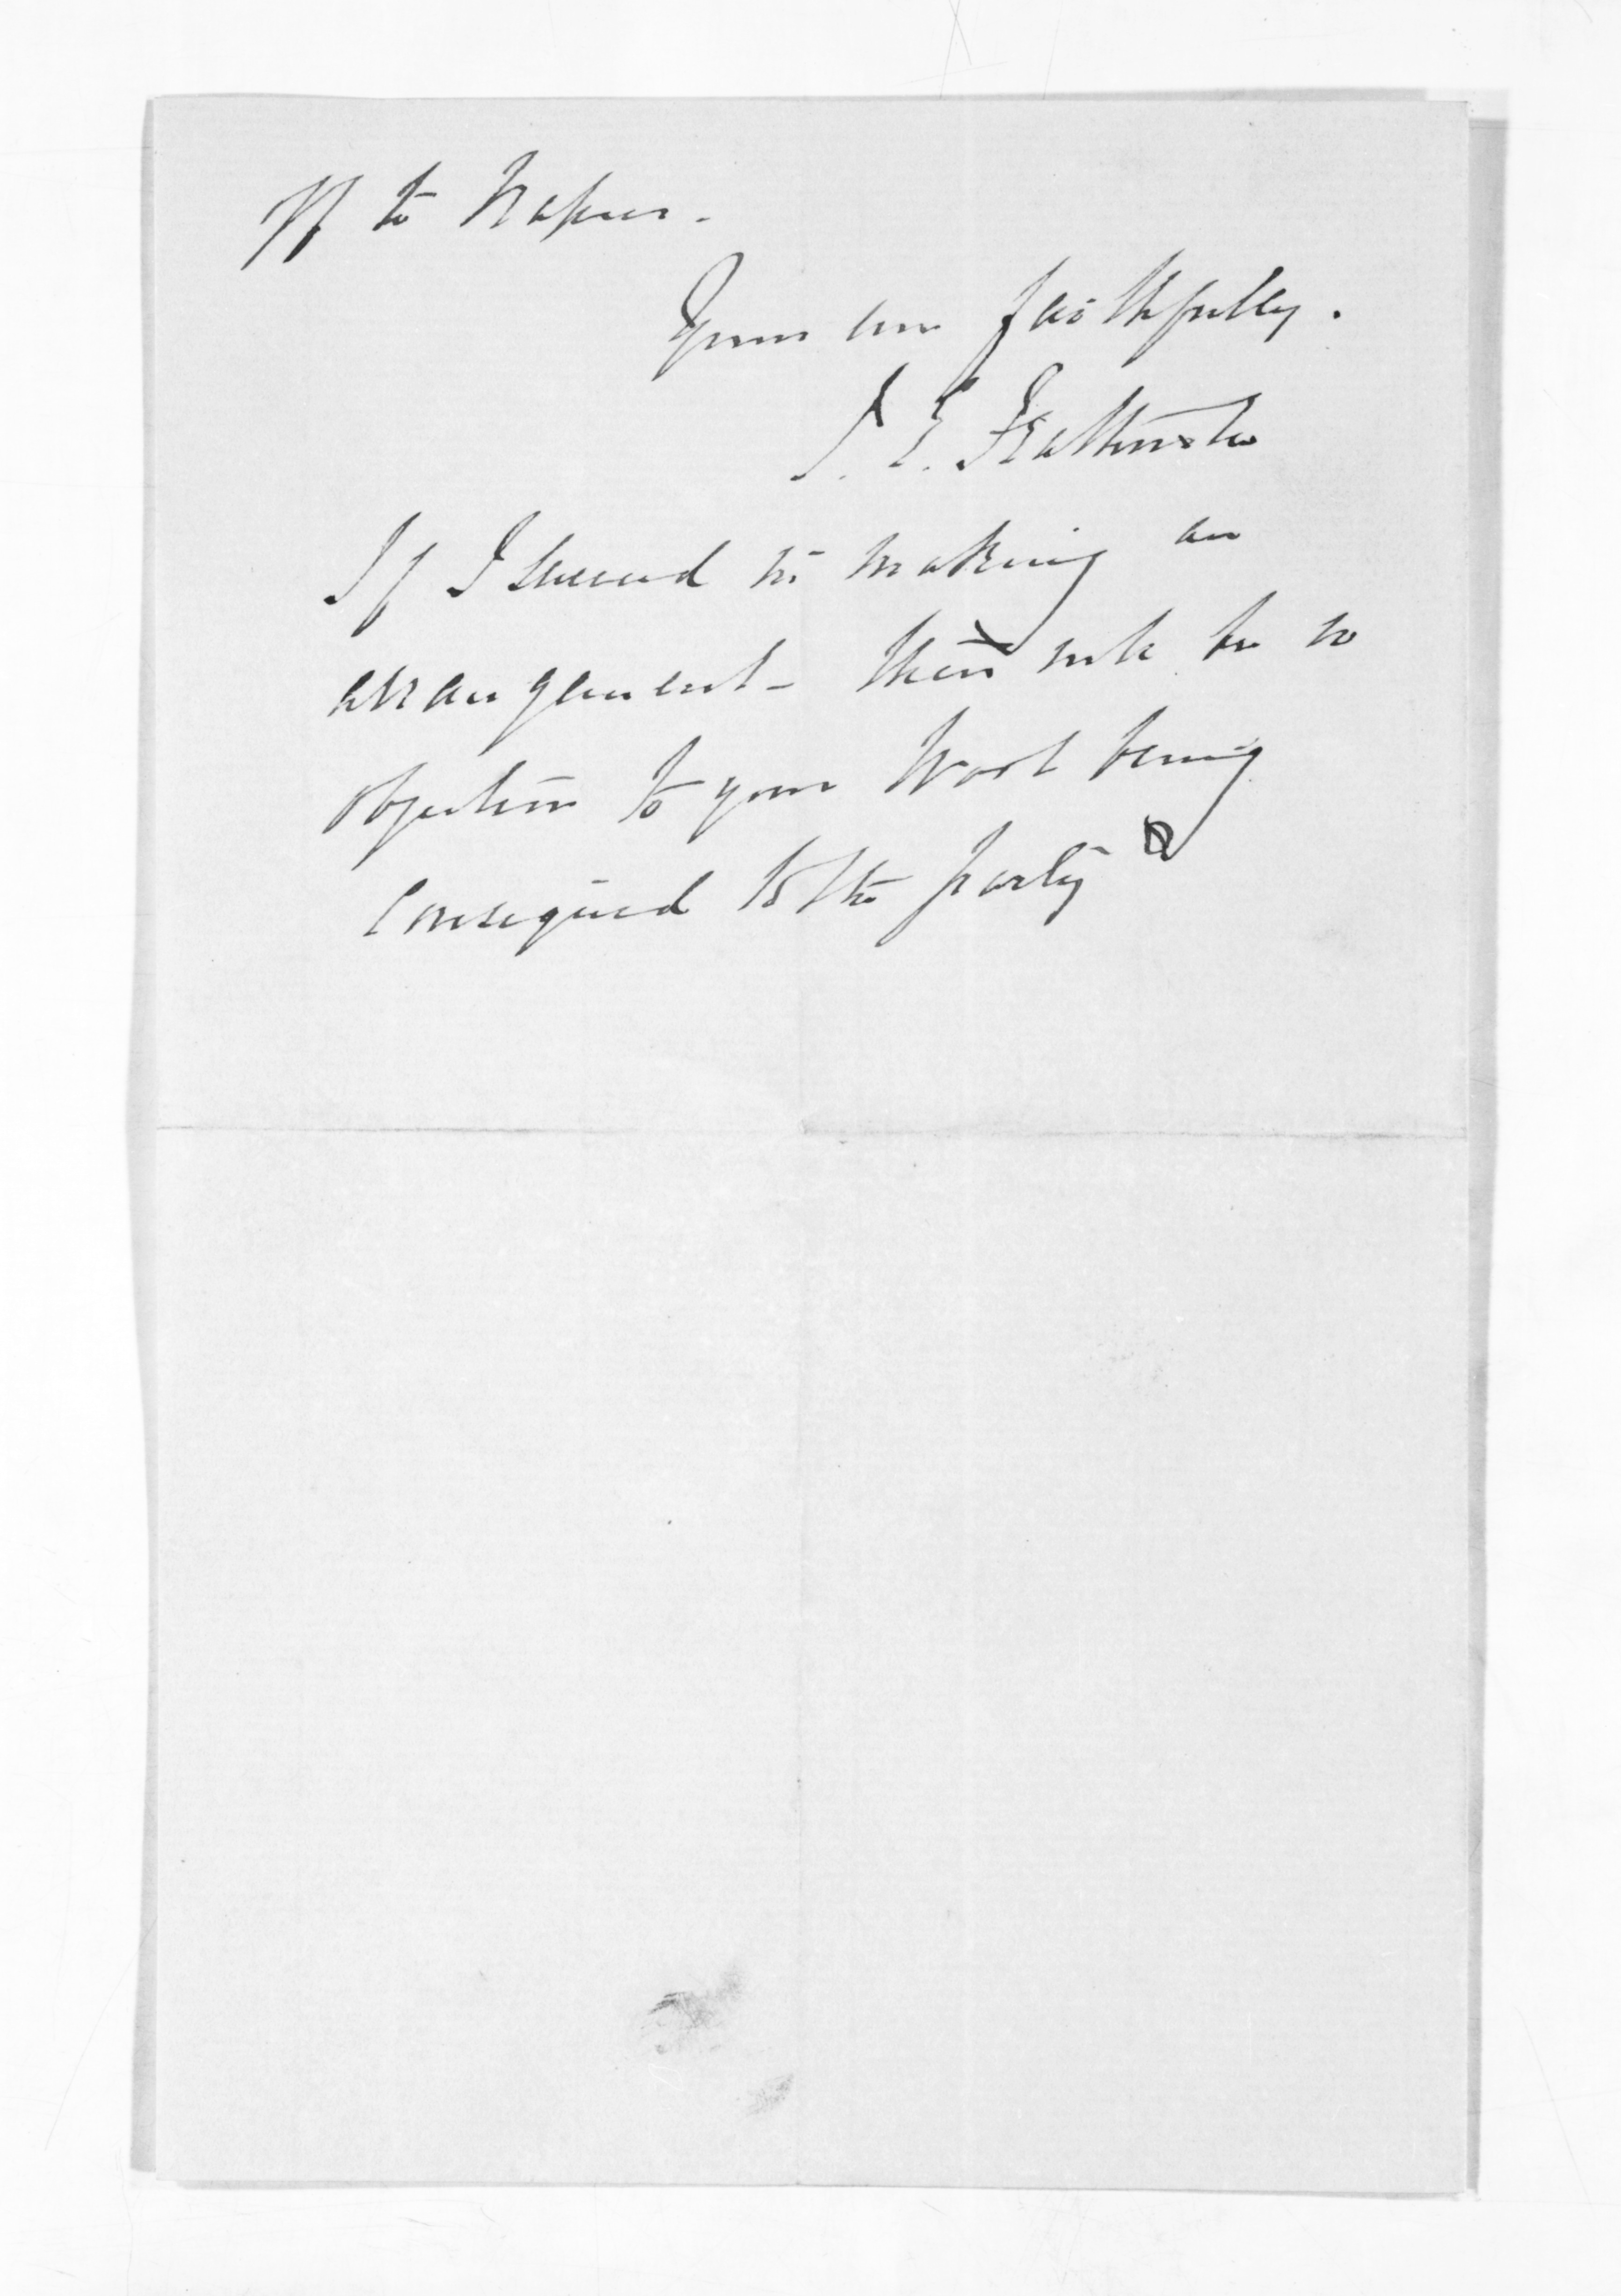 off to Napier.
Yours very faithfully.
I. E. Featherston
If I succeed in making an
arrangement - there will be no
objection to your Wool being
consigned to the party